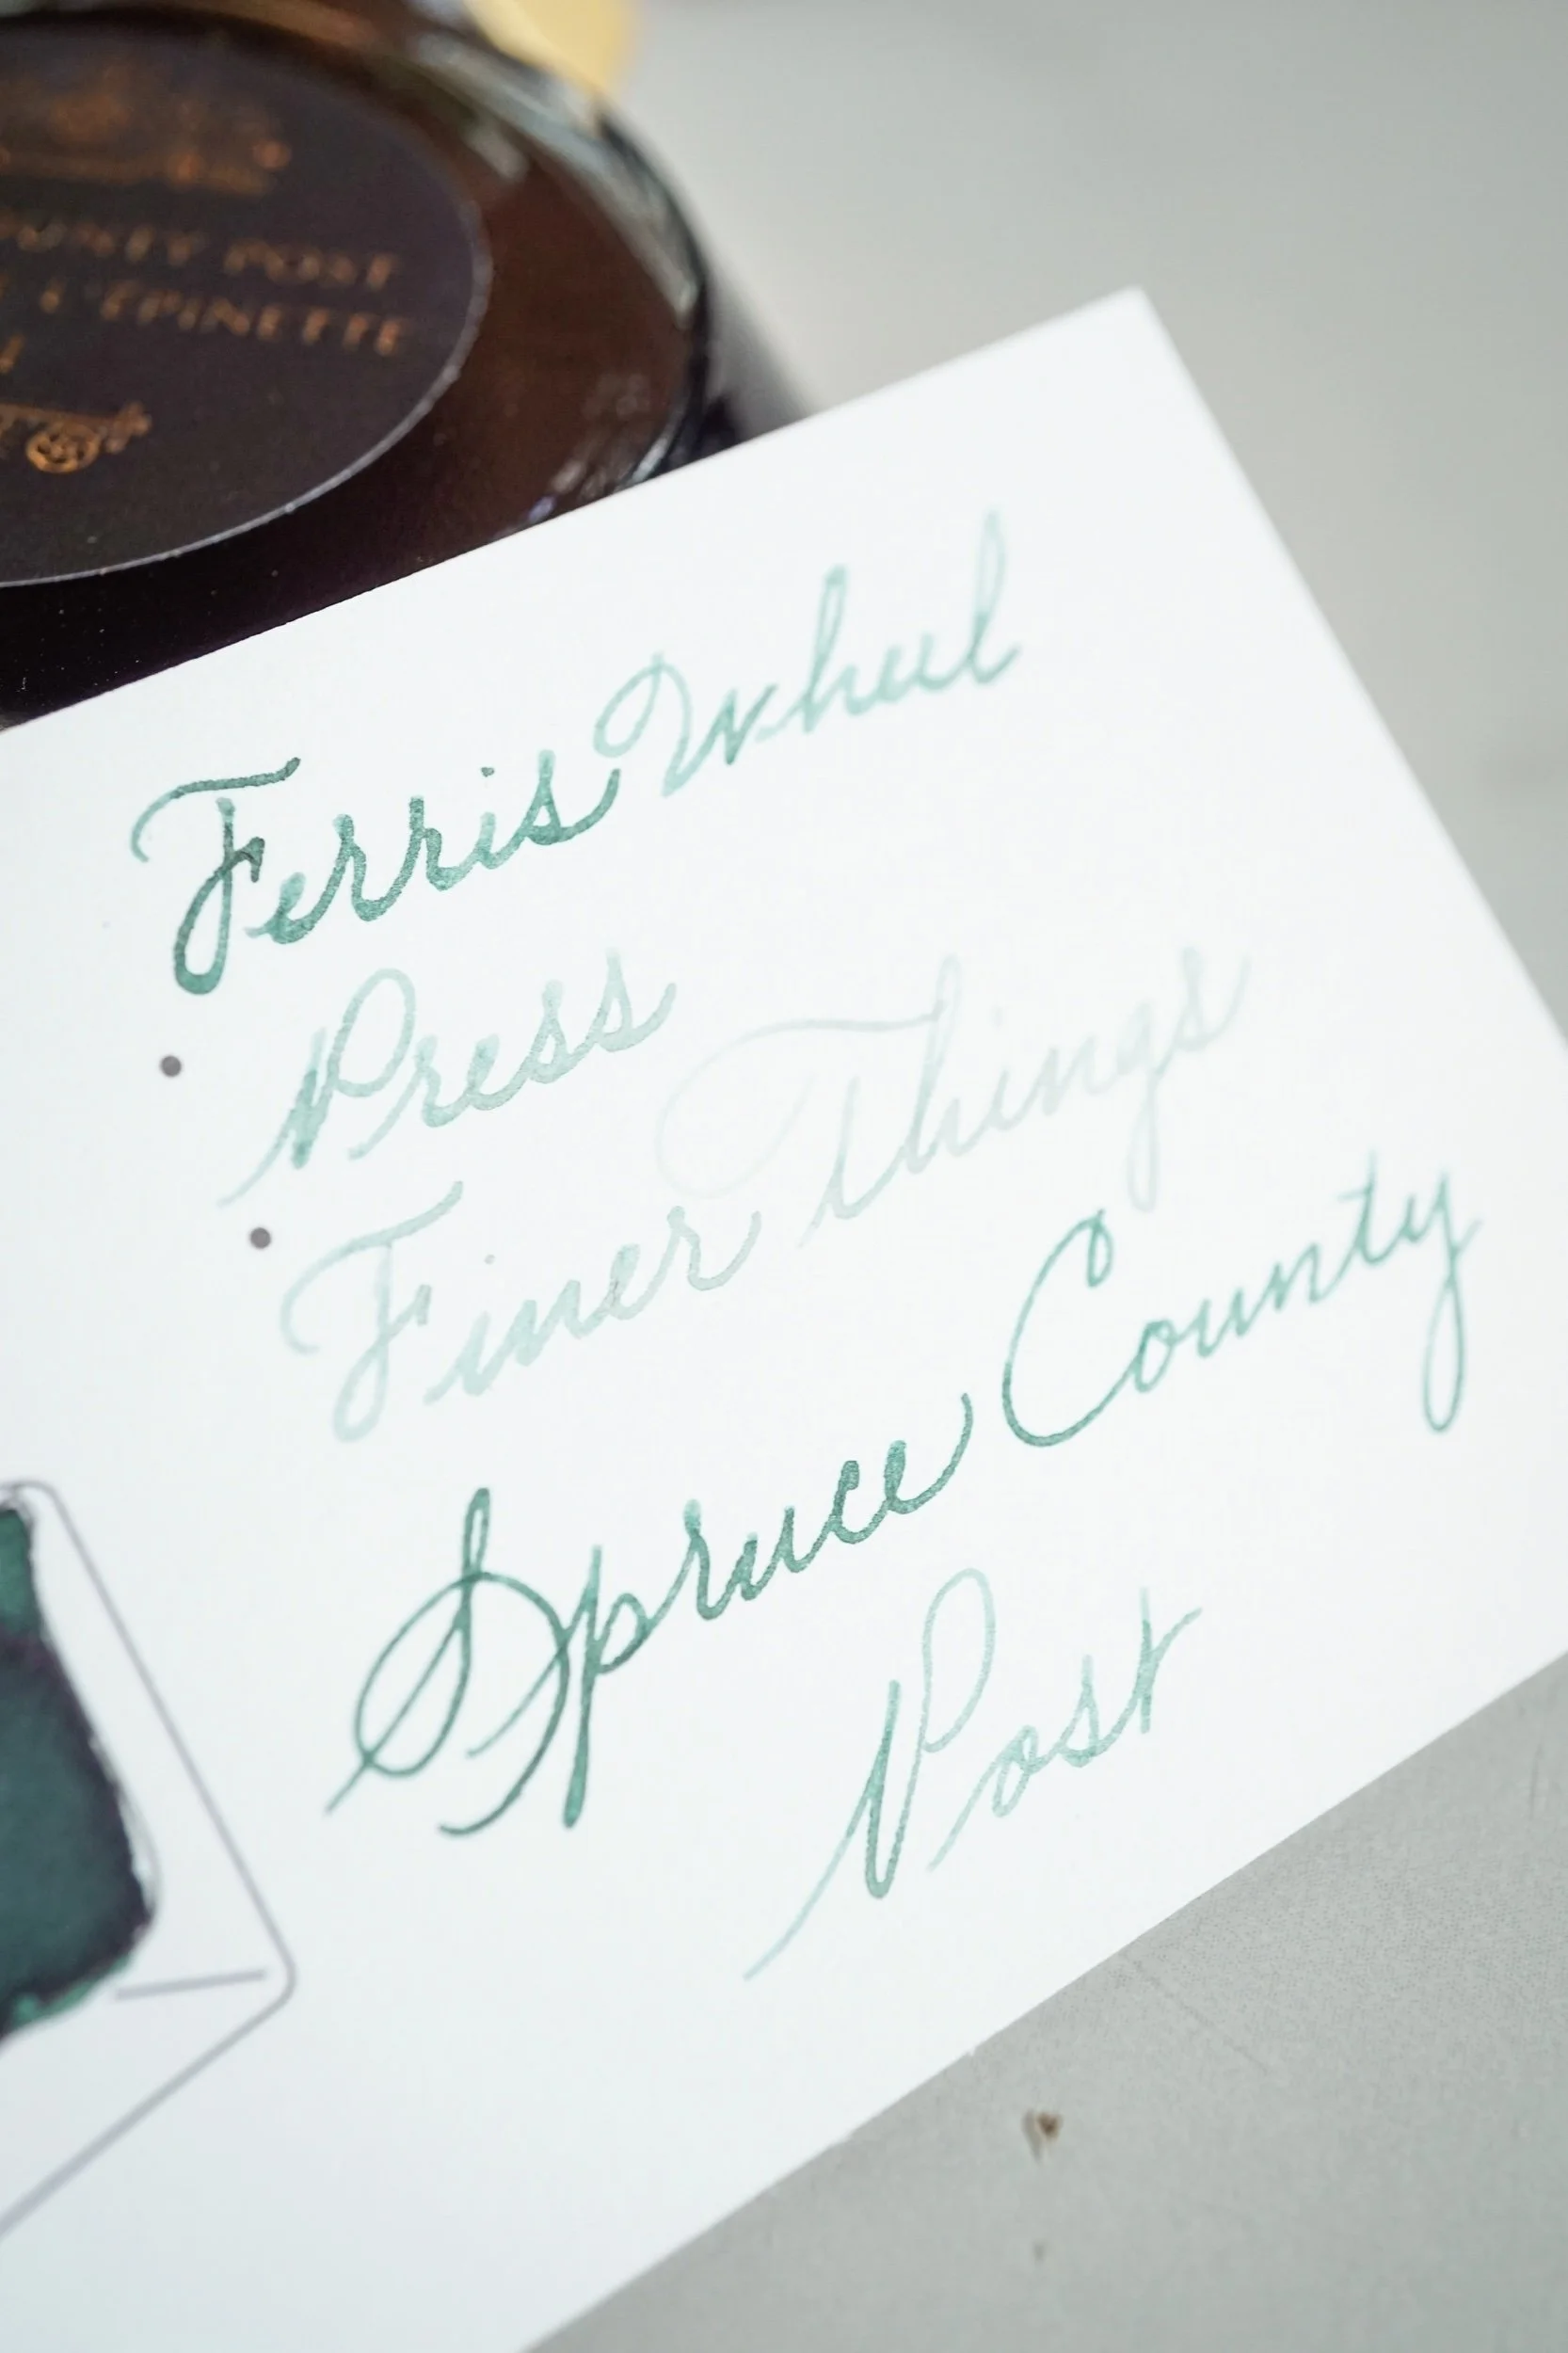 OUNTY POST
L'ÉPINETTE
Ferris Wheel
Press
Finer Things
Spruce County
Post